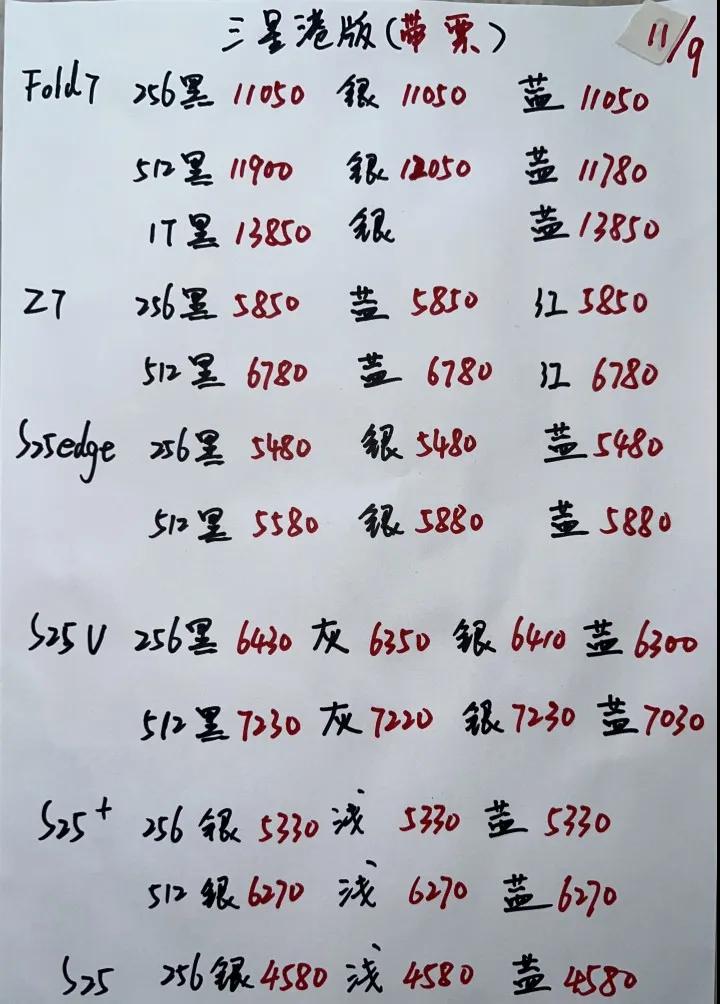 三星港版(带票) 11/9
Fold7 256黑 11050 银 11050 蓝 11050
512黑 11900 银 12050 蓝 11780
1T黑 13850 银 蓝 13850
Z7 256黑 5850 蓝 5850 红 5850
512黑 6780 蓝 6780 红 6780
S25edge 256黑 5480 银 5480 蓝 5480
512黑 5580 银 5880 蓝 5880
S25U 256黑 6430 灰 6350 银 6410 蓝 6300
512黑 7230 灰 7220 银 7230 蓝 7030
S25+ 256 银 5330 浅 5330 蓝 5330
512 银 6270 浅 6270 蓝 6270
S25 256银 4580 浅 4580 蓝 4580